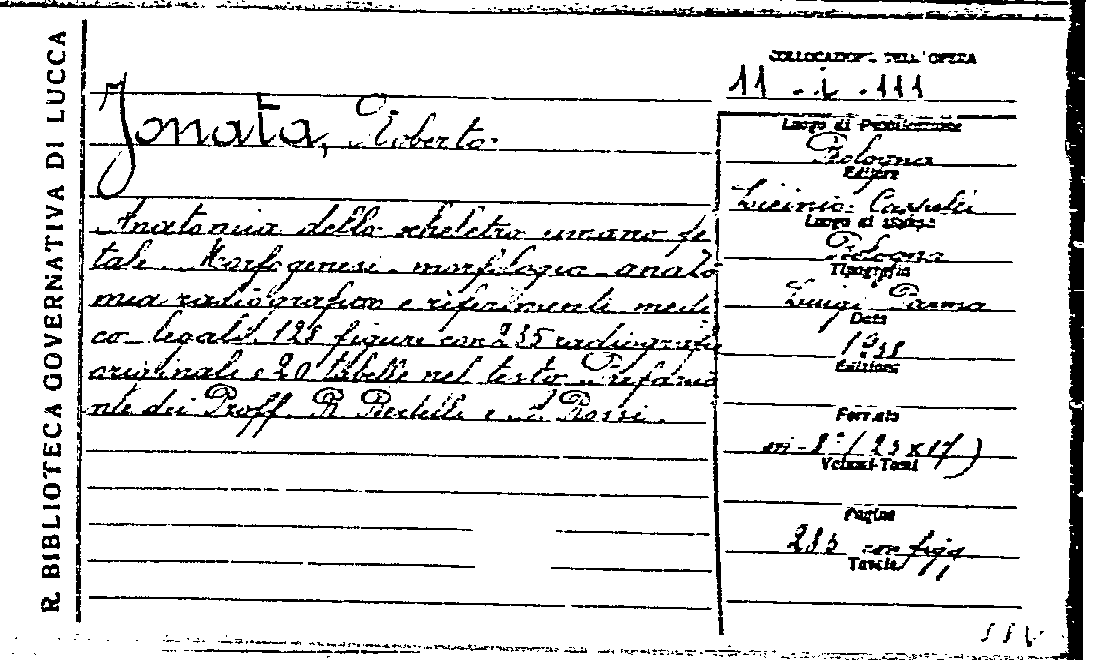 R. BIBLIOTECA GOVERNATIVA DI LUCCA
Jonata, Roberto.
Anatomia dello scheletro umano fe
tale. Morfogenesi morfologia anato
mia radiografica e riferimenti medi
co legali. 128 figure con 235 radiografie
originale e 20 tabelle nel testo. Prefazio
ne dei Proff. R. Bertelli e Rossi.
COLLOCAZIONE DELL'OPERA
11 - i - 111
Luogo di Pubblicazione
Bologna
Editore
Licinio Cappelli
Luogo di stampa
Bologna
Tipografia
Luigi Parma
Data
1938
Edizione
Formato
in-8° (25 x 17)
Volumi-Tomi
Pagine
285 con figg.
Tavole